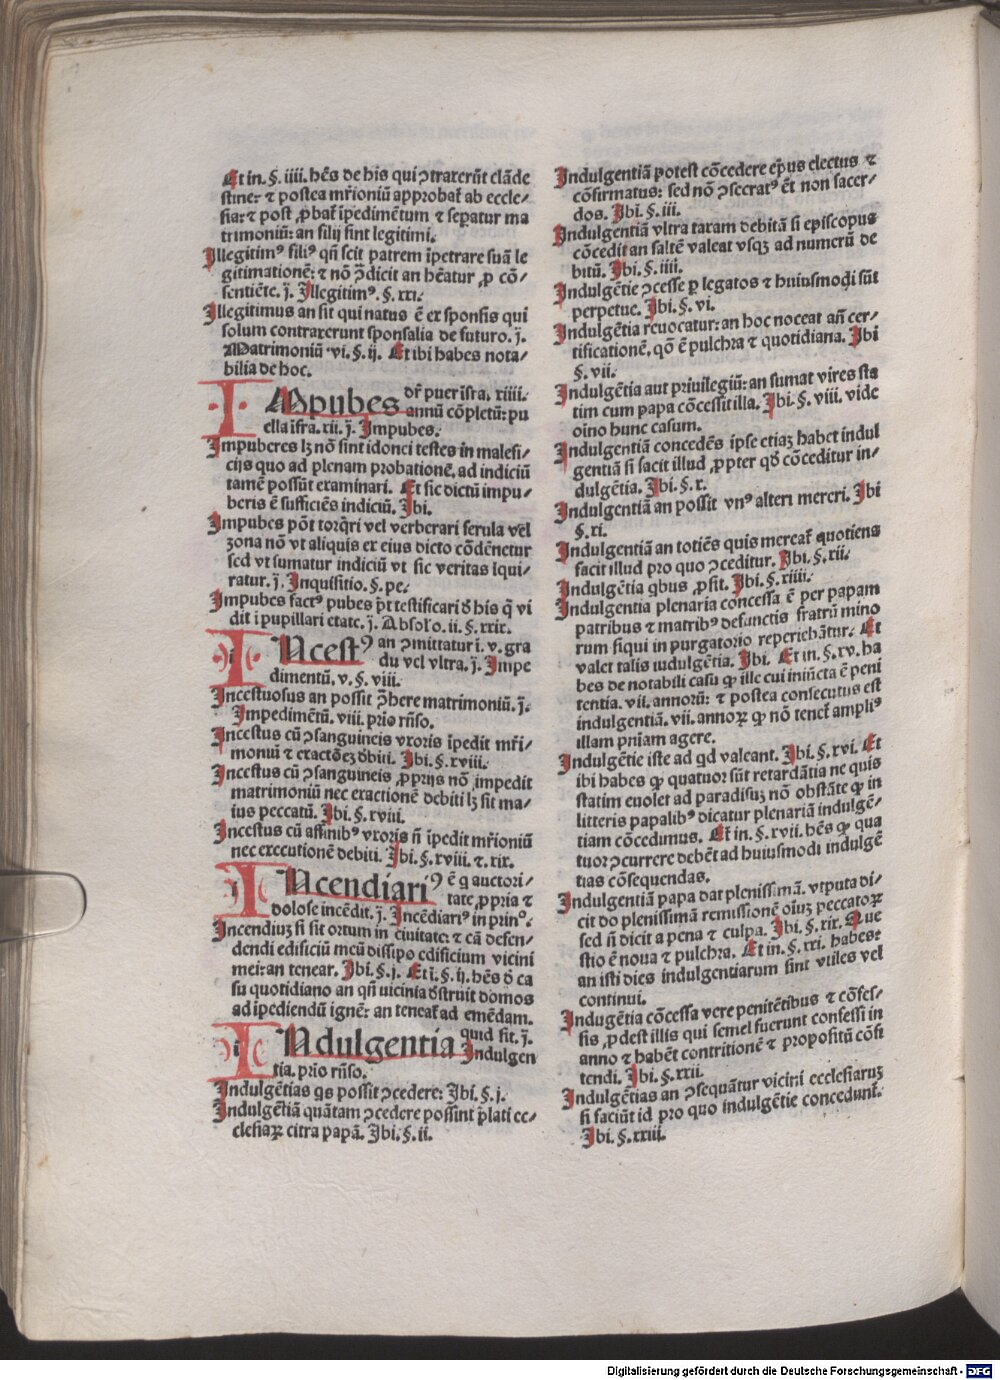 Et in. §. iiii. hēs de his qui ꝯtraxerūt clāde
stine: ⁊ postea mr̄ioniū approbat̄ ab eccle-
sia: ⁊ post ꝓbat̄ īpedimētum ⁊ sepatur ma
trimoniū: an filij sint legitimi.
Illegitimꝰ filiꝰ qñ scit patrem īpetrare suā le
gitimationē: ⁊ nō ꝯ̄dicit an hēatur ꝓ cō-
sentiēte. j̄. Illegitimꝰ. §. xxi.
Illegitimus an sit qui natus ē ex sponsis qui
solum contraxerunt sponsalia de futuro. j̄.
Matrimoniū ·vi. §. ij. Et ibi habes nota-
bilia de hoc.
IMpubes dr̄ puer īfra. xiiii.
annū cōpletū: pu
ella īfra. xii. j̄. Impubes.
Impuberes lꝫ nō sint idonei testes in malefi-
cijs quo ad plenam probationē, ad indiciū
tamē possūt examinari. Et sic dictū impu-
beris ē sufficiēs indiciū. Ibi.
Impubes pōt torq̄ri vel verberari ferula vel
zona nō vt aliquis ex eius dicto cōdēnetur
sed vt sumatur indiciū vt sic veritas īqui-
ratur. j̄. Inquisitio. §. pe.
Impubes factꝰ pubes pt̄ testificari d̄ his q̄ vi
dit ī pupillari etate. j̄. Absolo. ii. §. xxix.
INcestꝰ an ꝯmittatur ī. v. gra
du vel vltra. j̄. Impe
dimentū. v. §. viii.
Incestuosus an possit ꝯ̄here matrimoniū. j̄.
Impedimētū. viii. prio rñso.
Incestus cū ꝯsanguineis vxoris īpedit mr̄i-
moniū ⁊ exactōeꝫ d̄biti. Ibi. §. xviii.
Incestus cū ꝯsanguineis ꝓprijs nō impedit
matrimoniū nec exactionē debiti lꝫ sit ma-
ius peccatū. Ibi. §. xviii.
Incestus cū affinibꝰ vxoris ñ īpedit mr̄ioniū
nec executionē debiti. Ibi. §. xviii. ⁊. xix.
INcendiariꝰ ē q auctori-
tate ꝓpria ⁊
dolose incēdit. j̄. Incēdiariꝰ in prinº.
Incendiuꝫ si sit ortum in ciuitate: ⁊ cā defen-
dendi edificiū meū dissipo edificium vicini
mei: an tenear. Ibi. §. j. Et ī. §. ij. hēs d̄ ca
su quotidiano an qñ uicinia d̄struit domos
ad īpediendū ignē: an teneat̄ ad emēdam.
INdulgentia quid sit. j̄.
Indulgen
tia. prio rñso.
Indulgētias qs possit ꝯcedere: Ibi. §. j.
Indulgētiā quātam ꝯcedere possint p̄lati ec-
clesiaꝝ citra papā. Ibi. §. ii.
Indulgentiā potest cōcedere ep̄us electus ⁊
cōfirmatus: sed nō ꝯsecratꝰ ēt non sacer-
dos. Ibi. §. iii.
Indulgentiā vltra taxam debitā si episcopus
cōcedit an saltē valeat vsqꝫ ad numerū de
bitū. Ibi. §. iiii.
Indulgētie ꝯcesse ꝑ legatos ⁊ huiusmodi sūt
perpetue. Ibi. §. vi.
Indulgētia reuocatur: an hoc noceat añ cer-
tificationē, qō ē pulchra ⁊ quotidiana. Ibi
§. vii.
Indulgētia aut priuilegiū: an sumat vires sta
tim cum papa cōcessit illa. Ibi. §. viii. vide
oīno hunc casum.
Indulgentiā concedēs ipse etiaꝫ habet indul
gentiā si facit illud ꝓpter qd̄ cōceditur in-
dulgētia. Ibi. §. x.
Indulgentiā an possit vnꝰ alteri mereri. Ibi
§. xi.
Indulgentiā an totiēs quis mereat̄ quotiens
facit illud pro quo ꝯceditur. Ibi. §. xii.
Indulgētia qbus ꝓsit. Ibi. §. xiiii.
Indulgentia plenaria concessa ē per papam
patribus ⁊ matribꝰ defunctis fratrū mino
rum siqui in purgatorio reperiehātur. Et
valet talis iudulgētia. Ibi. Et in. §. xv. ha
bes de notabili casu ꝙ ille cui iniūcta ē peni
tentia. vii. annorū: ⁊ postea consecutus est
indulgentiā. vii. annoꝝ ꝙ nō tenet̄ ampliꝰ
illam pn̄iam agere.
Indulgētie iste ad qd valeant. Ibi. §. xvi. Et
ibi habes ꝙ quatuor sūt retardātia ne quis
statim euolet ad paradisuꝫ nō obstāte ꝙ in
litteris papalibꝰ dicatur plenariā indulgē-
tiam cōcedimus. Et in. §. xvii. hēs ꝙ qua
tuor ꝯcurrere debēt ad huiusmodi indulgē
tias cōsequendas.
Indulgentiam papa dat plenissimā. vtputa di-
cit do plenissimā remissionē oīuꝫ peccatoꝝ
sed ñ dicit a pena ⁊ culpa. Ibi. §. xix. Que
stio ē noua ⁊ pulchra. Et in. §. xxi. habes:
an isti dies indulgentiarum sint vtiles vel
continui.
Indugētia cōcessa vere penitētibus ⁊ cōfes-
sis ꝓdest illis qui semel fuerunt confessi in
anno ⁊ habēt contritionē ⁊ propositū cōfi
tendi. Ibi. §. xxii.
Indulgētias an ꝯsequātur vicini ecclesiaruꝫ
si faciūt id pro quo indulgētie concedunt̄.
Ibi. §. xxiii.
Digitalisierung gefördert durch die Deutsche Forschungsgemeinschaft - DFG